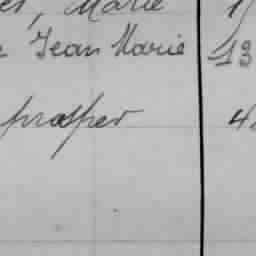 Marie
Jean Marie 13
prosper 4